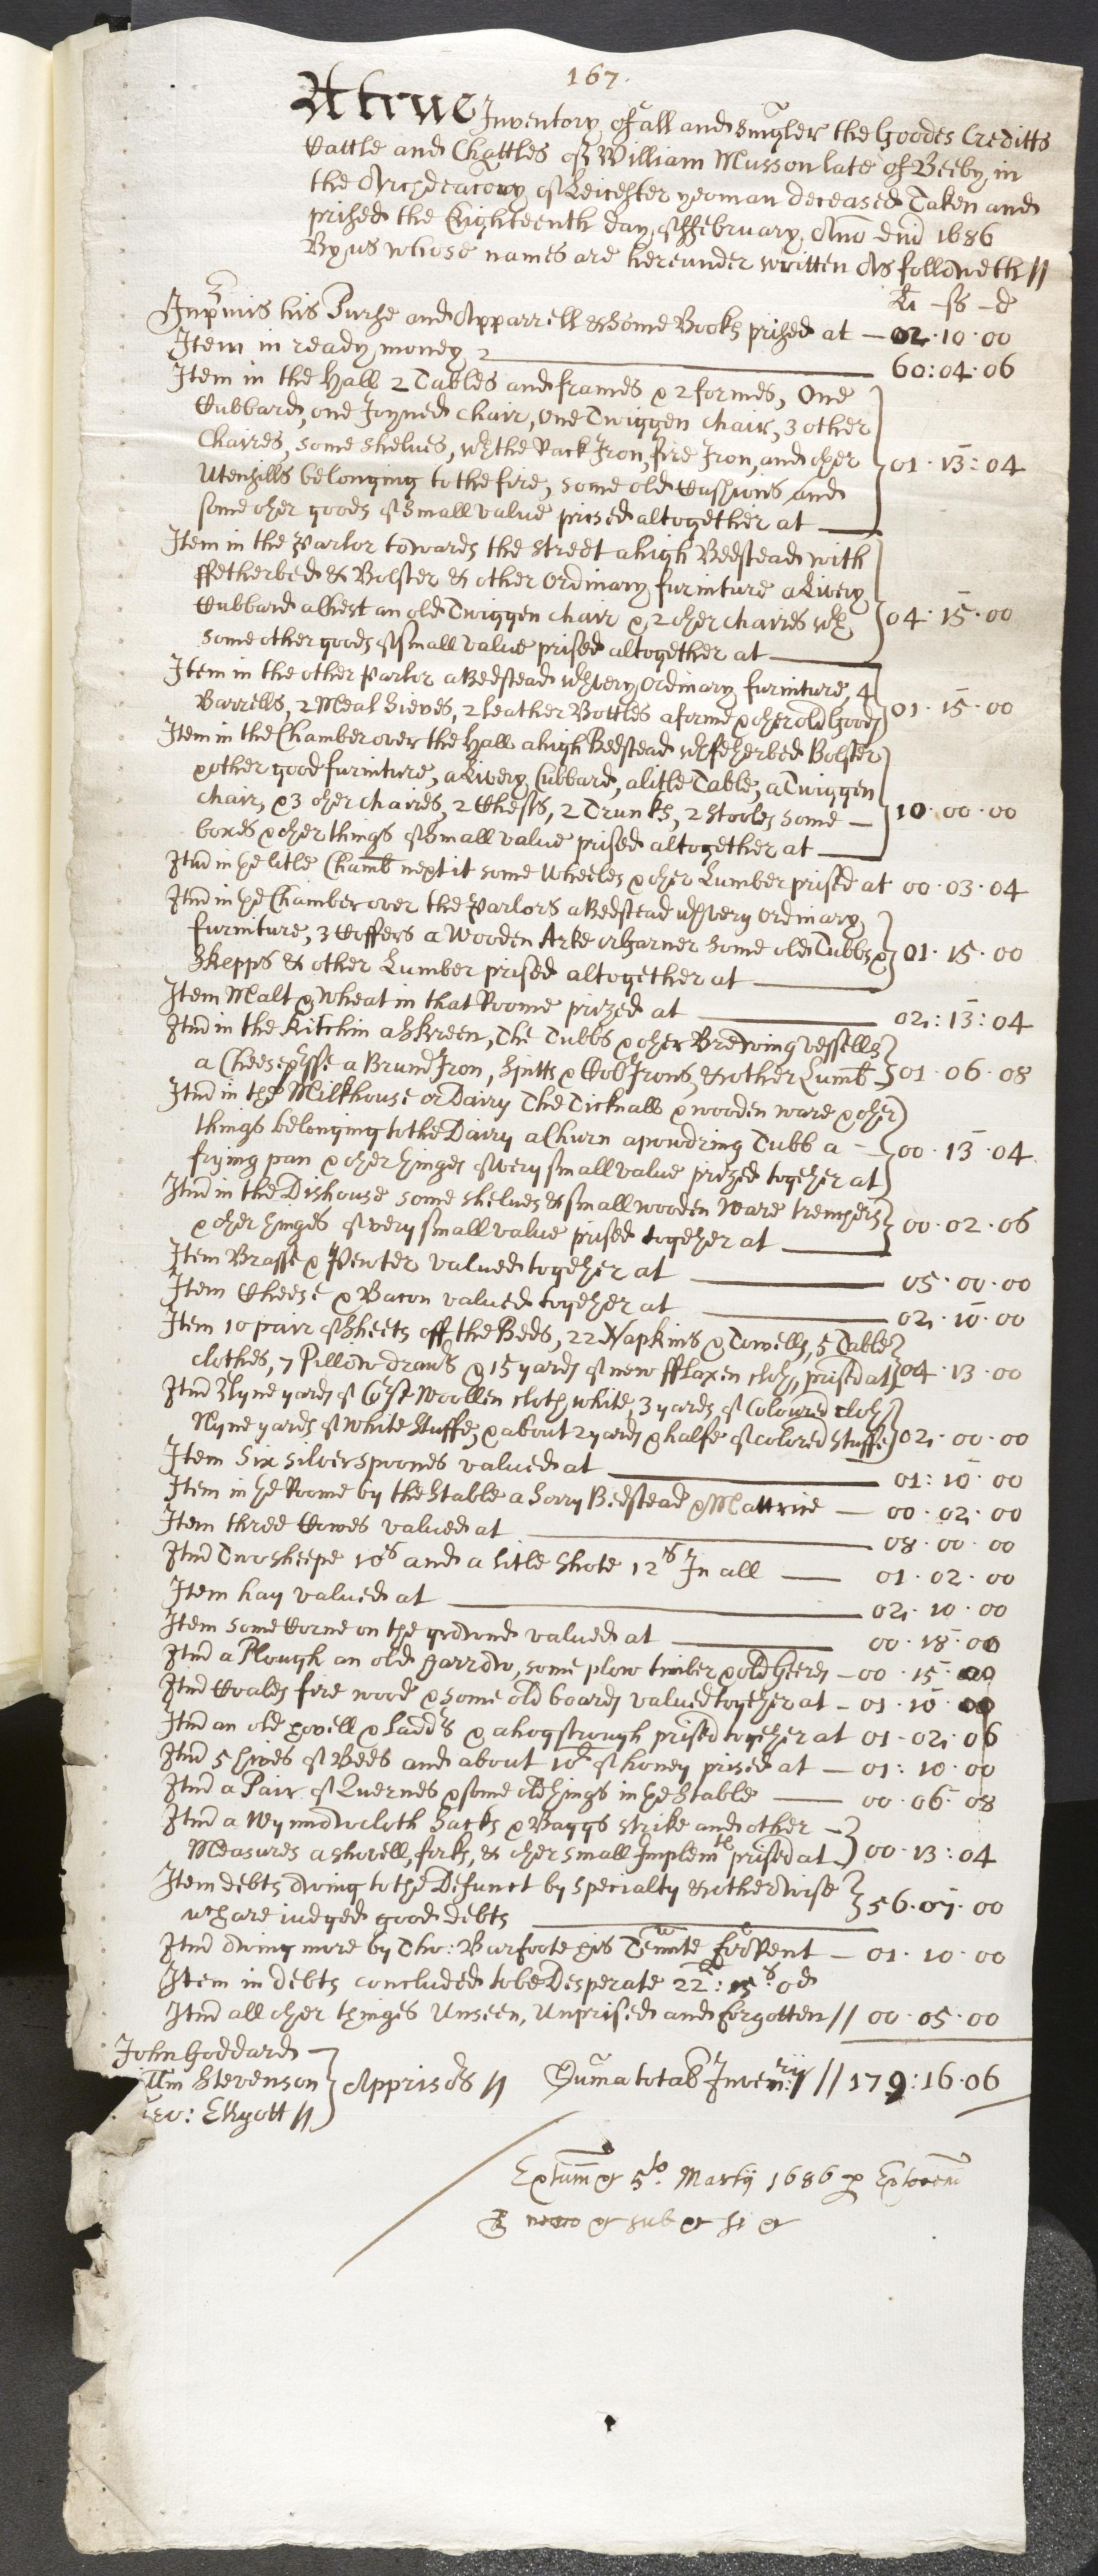 167.
A true Inventory of all and singler the Goodes Creditts
Cattle and Chattles of William Musson late of Beeby in
the Archdeacory of Leicester yeoman deceased Taken and
prised the Eighteenth day of ffebruary, Ano dni 1686
By us whose names are hereunder written As followeth //
li - ss - d
Inpimis his Purse and Apparrell & some Books prised at — 02 · 10 · 00
Item in ready money 60 : 04 · 06
Item in the Hall 2 Tables and frames & 2 formes, One
Cubbard, one Joyned Chair, One Twiggen chair, 3 other
Chaires, some shelves, wth the Rack Iron, fire Iron, and other
Utensills belonging to the fire, some old Cushions and
some other goods of small value prised altogether at — 01 · 13 : 04
Item in the Parlor towards the street a high Bedstead with
ffetherbed & Bolster & other Ordinary furniture a Livery
Cubbard a Chest an old Twiggen chair & 2 other chaires wth
some other goods of small value prised altogether at — 04 · 15 · 00
Item in the other Parlor a Bedstead wth very Ordinary furniture, 4
Barrells, 2 Meal Sieves, 2 leather Bottles a forme & other old Goods 01 · 15 · 00
Item in the Chamber over the Hall a high Bedstead wth fetherbed Bolster
& other good furniture, a Livery Cubbard, a litle Table, a Twiggen
chair, & 3 other chaires, 2 Chests, 2 Trunks, 2 stooles some —
boxes & other things of small value prised altogether at — 10 · 00 · 00
Itm in ye litle Chamb next it some Wheeles & other Lumber prised at 00 · 03 · 04
Itm in ye Chamber over the Parlors a Bedstead wth very ordinary
furniture, 3 Coffers a Wooden Arke or Garner some old Tubbs &
Skepps & other Lumber prised altogether at — 01 · 15 · 00
Item Malt & Wheat in that Roome prized at — 02 : 13 : 04
Itm in the Kitchin a Skreen, The Tubbs & other Brewing vessells
a Cheesepresse a Brund Iron, Spitts & Cob Irons, & other Lumb 01 · 06 · 08
Itm in the Milkhouse or Dairy The Ticknall & wooden ware & other
things belonging to the Dairy a Churn a powdring Tubb a —
frying pan & other thinges of very small value prized together at 00 · 13 · 04
Itm in the Dishouse some shelves & small wooden Ware trenchers
& other thinges of very small value prised together at — 00 · 02 · 06
Item Brasse & Pewter valued together at — 05 · 00 · 00
Item Cheese & Bacon valued together at — 02 · 10 · 00
Item 10 pair of Sheets off the Beds, 22 Napkins & Towells, 5 Table
clothes, 7 Pillow drawrs & 15 yards of new fflaxen cloth, prised at 04 · 13 · 00
Itm Nyne yards of Woollen cloth white, 3 yards of Coloured cloth
Nyne yards of White Stuffe, & about 2 yards & halfe of colored stuffe 02 · 00 · 00
Item Six silver spoones valued at — 01 : 10 · 00
Item in ye Roome by the Stable a Sorry Bedstead & Mattrice — 00 · 02 · 00
Item three Cowes valued at — 08 · 00 · 00
Itm Two sheepe 10s and a litle Shote 12s In all — 01 · 02 · 00
Item hay valued at — 02 · 10 · 00
Item some Corne on the grownd valued at — 00 · 18 · 00
Itm a Plough an old Harrow, some plow timber & old Geers — 00 · 15 · 00
Itm Coales fire wood & some old boards valued together at — 01 · 10 · 00
Itm an old hovell & Ladders & a hogstrough prised together at 01 · 02 · 06
Itm 5 hives of Bees and about of honey prised at — 01 : 10 · 00
Itm a Pair of Quernes & some old things in ye Stable — 00 · 06 · 08
Itm a Wynnowcloth Sacks & Baggs strike and other —
Measures a shovell, forks, & other small Implemts prised at 00 · 13 : 04
Item debts owing to the Defunct by Specialty & otherwise
wch are judged good debts — 56 · 07 · 00
Itm owing more by Tho: Burfoote his Tennte for Rent — 01 · 10 · 00
Item in debts concluded to be Desperate 22l : 15s : 0d
Itm all other thinges Unseen, Unprised and forgotten // 00 · 05 · 00
John Goddard
Stevenson
: Ellyott //
Apprisrs //
Suma total Inventrij // 179 : 16 · 06
5to Martij 1686